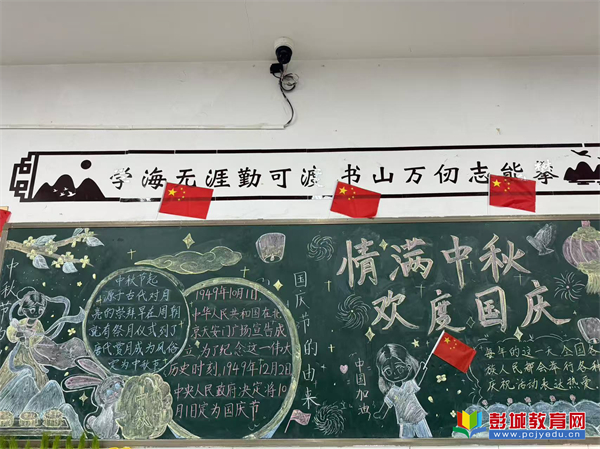 学海无涯勤可渡 书山万仞志能攀
情满中秋
欢度国庆
中秋节
中秋节起
源于古代对月
亮的崇拜早在周朝
就有祭月仪式到了
唐代赏月成为风俗
定为中秋节
1949年10月1日
中华人民共和国在北
京天安门广场宣告成
立为了纪念这一伟大
历史时刻,1949年12月2日
中央人民政府决定将10
月1日定为国庆节
国庆节的由来
中国加油
每年的这一天全国各
族人民都会举行各种
庆祝活动表达热爱
彭城教育网
www.pcjyedu.cn